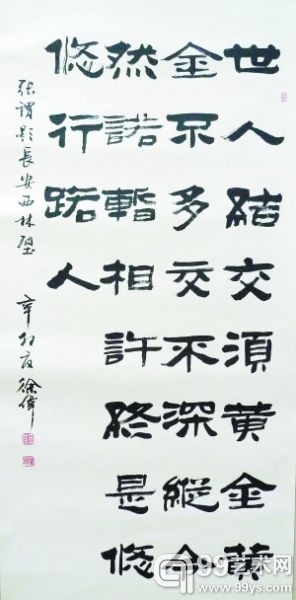 世人結交須黄金黄
金不多交不深縱令
然諾暫相許終是悠
悠行路人
张谓题長安西林壁
辛卯夏徐偉
99艺术网
www.99ys.com